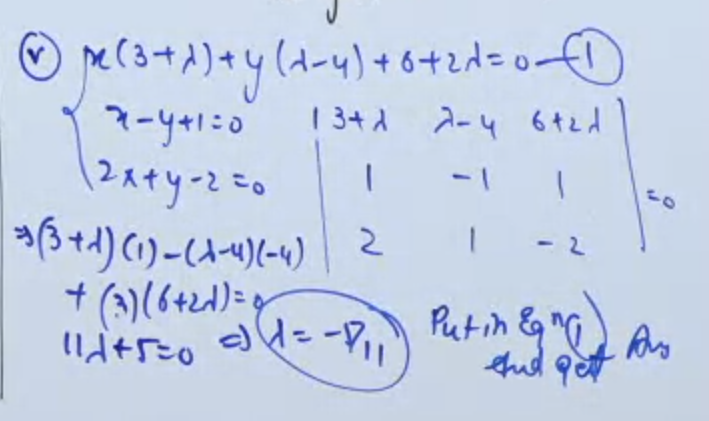 (v) x(3+λ)+y(λ-4)+6+2λ=0 — (1)
x-y+1=0
2x+y-2=0
| 3+λ λ-4 6+2λ |
| 1 -1 1 | =0
| 2 1 -2 |
⇒(3+λ)(1)-(λ-4)(-4)
+(3)(6+2λ)=0
11λ+5=0 ⇒ λ=-5/11
Put in Eqn (1)
and get Ans